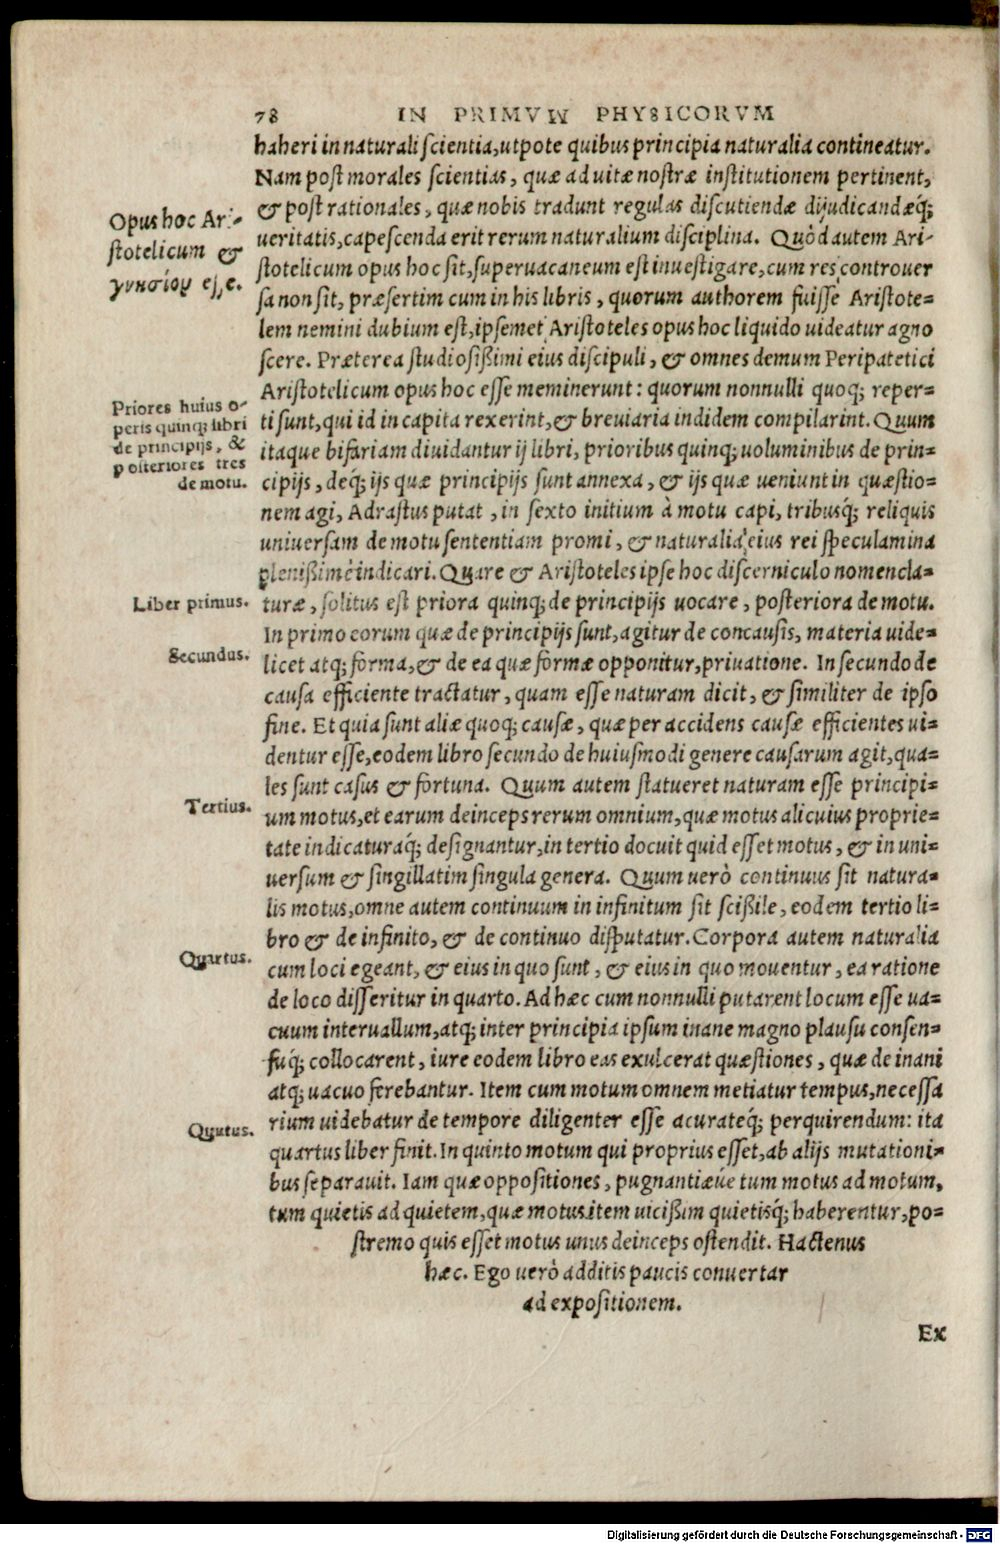 78 IN PRIMVM PHYSICORVM
haberi in naturali scientia, utpote quibus principia naturalia contineatur.
Nam post morales scientias, quæ ad uitæ nostræ institutionem pertinent,
& post rationales, quæ nobis tradunt regulas discutiendæ dijudicandæq́;
ueritatis, capescenda erit rerum naturalium disciplina. Quòd autem Ari-
stotelicum opus hoc sit, superuacaneum est inuestigare, cum res controuer
sa non sit, præsertim cum in his libris, quorum authorem fuisse Aristote=
lem nemini dubium est, ipsemet Aristoteles opus hoc liquido uideatur agno
scere. Præterea studiosißimi eius discipuli, & omnes demum Peripatetici
Aristotelicum opus hoc esse meminerunt: quorum nonnulli quoq; reper=
ti sunt, qui id in capita rexerint, & breuiaria indidem compilarint. Quum
itaque bifariam diuidantur ij libri, prioribus quinq; uoluminibus de prin=
cipijs, deq́; ijs quæ principijs sunt annexa, & ijs quæ ueniunt in quæstio=
nem agi, Adrastus putat, in sexto initium à motu capi, tribusq́; reliquis
uniuersam de motu sententiam promi, & naturalia eius rei speculamina
plenißimè indicari. Quare & Aristoteles ipse hoc discerniculo nomencla=
turæ, solitus est priora quinq; de principijs uocare, posteriora de motu.
In primo eorum quæ de principijs sunt, agitur de concausis, materia uide=
licet atq; forma, & de ea quæ formæ opponitur, priuatione. In secundo de
causa efficiente tractatur, quam esse naturam dicit, & similiter de ipso
fine. Et quia sunt aliæ quoq; causæ, quæ per accidens causæ efficientes ui=
dentur esse, eodem libro secundo de huiusmodi genere causarum agit, qua=
les sunt casus & fortuna. Quum autem statueret naturam esse principi=
um motus, et earum deinceps rerum omnium, quæ motus alicuius proprie=
tate indicaturaq́; designantur, in tertio docuit quid esset motus, & in uni=
uersum & singillatim singula genera. Quum uerò continuus sit natura=
lis motus, omne autem continuum in infinitum sit scißile, eodem tertio li=
bro & de infinito, & de continuo disputatur. Corpora autem naturalia
cum loci egeant, & eius in quo sunt, & eius in quo mouentur, ea ratione
de loco disseritur in quarto. Ad hæc cum nonnulli putarent locum esse ua=
cuum interuallum, atq; inter principia ipsum inane magno plausu consen=
suq́; collocarent, iure eodem libro eas exulcerat quæstiones, quæ de inani
atq; uacuo ferebantur. Item cum motum omnem metiatur tempus, necessa
rium uidebatur de tempore diligenter esse acurateq́; perquirendum: ita
quartus liber finit. In quinto motum qui proprius esset, ab alijs mutationi=
bus separauit. Iam quæ oppositiones, pugnantiæúe tum motus ad motum,
tum quietis ad quietem, quæ motus item uicißim quietisq́; haberentur, po=
stremo quis esset motus unus deinceps ostendit. Hactenus
hæc. Ego uerò additis paucis conuertar
ad expositionem.
Ex
Opus hoc Ari-
stotelicum &
γνησίον esse.
Priores huius o-
peris quinq; libri
de principijs, &
posteriores tres
de motu.
Liber primus.
Secundus.
Tertius.
Quartus.
Quintus.
Digitalisierung gefördert durch die Deutsche Forschungsgemeinschaft - DFG